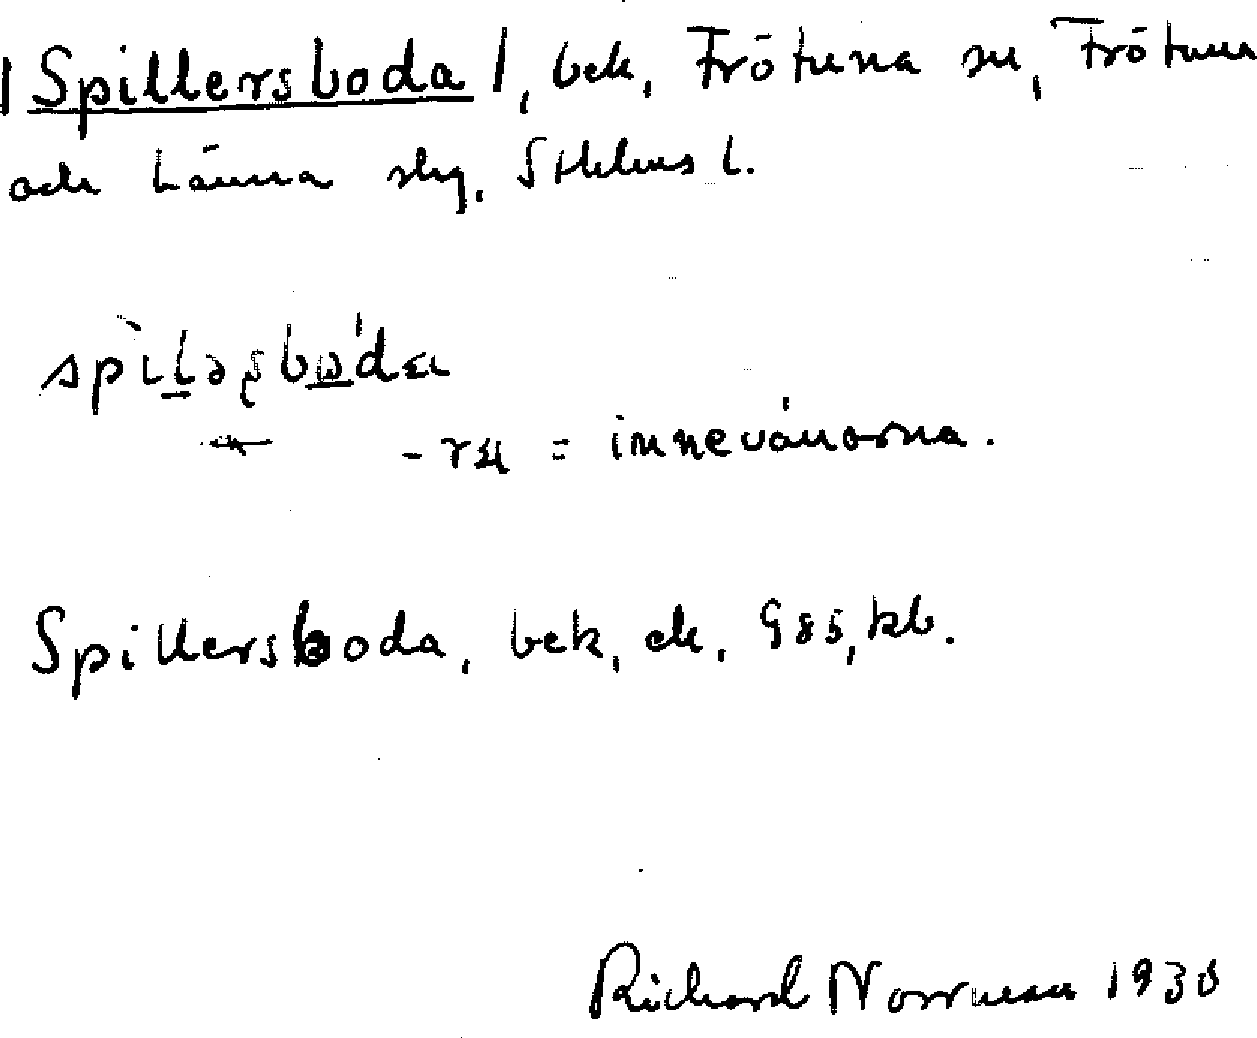 | Spillersboda |, bek, Frötuna sn, Frötuna
och Länna skg. Sthlms l.
spìləʂbω'da
-ra = innevånarna.
Spillersboda, bek, ek. 985, kb.
Richard Norrman 1930